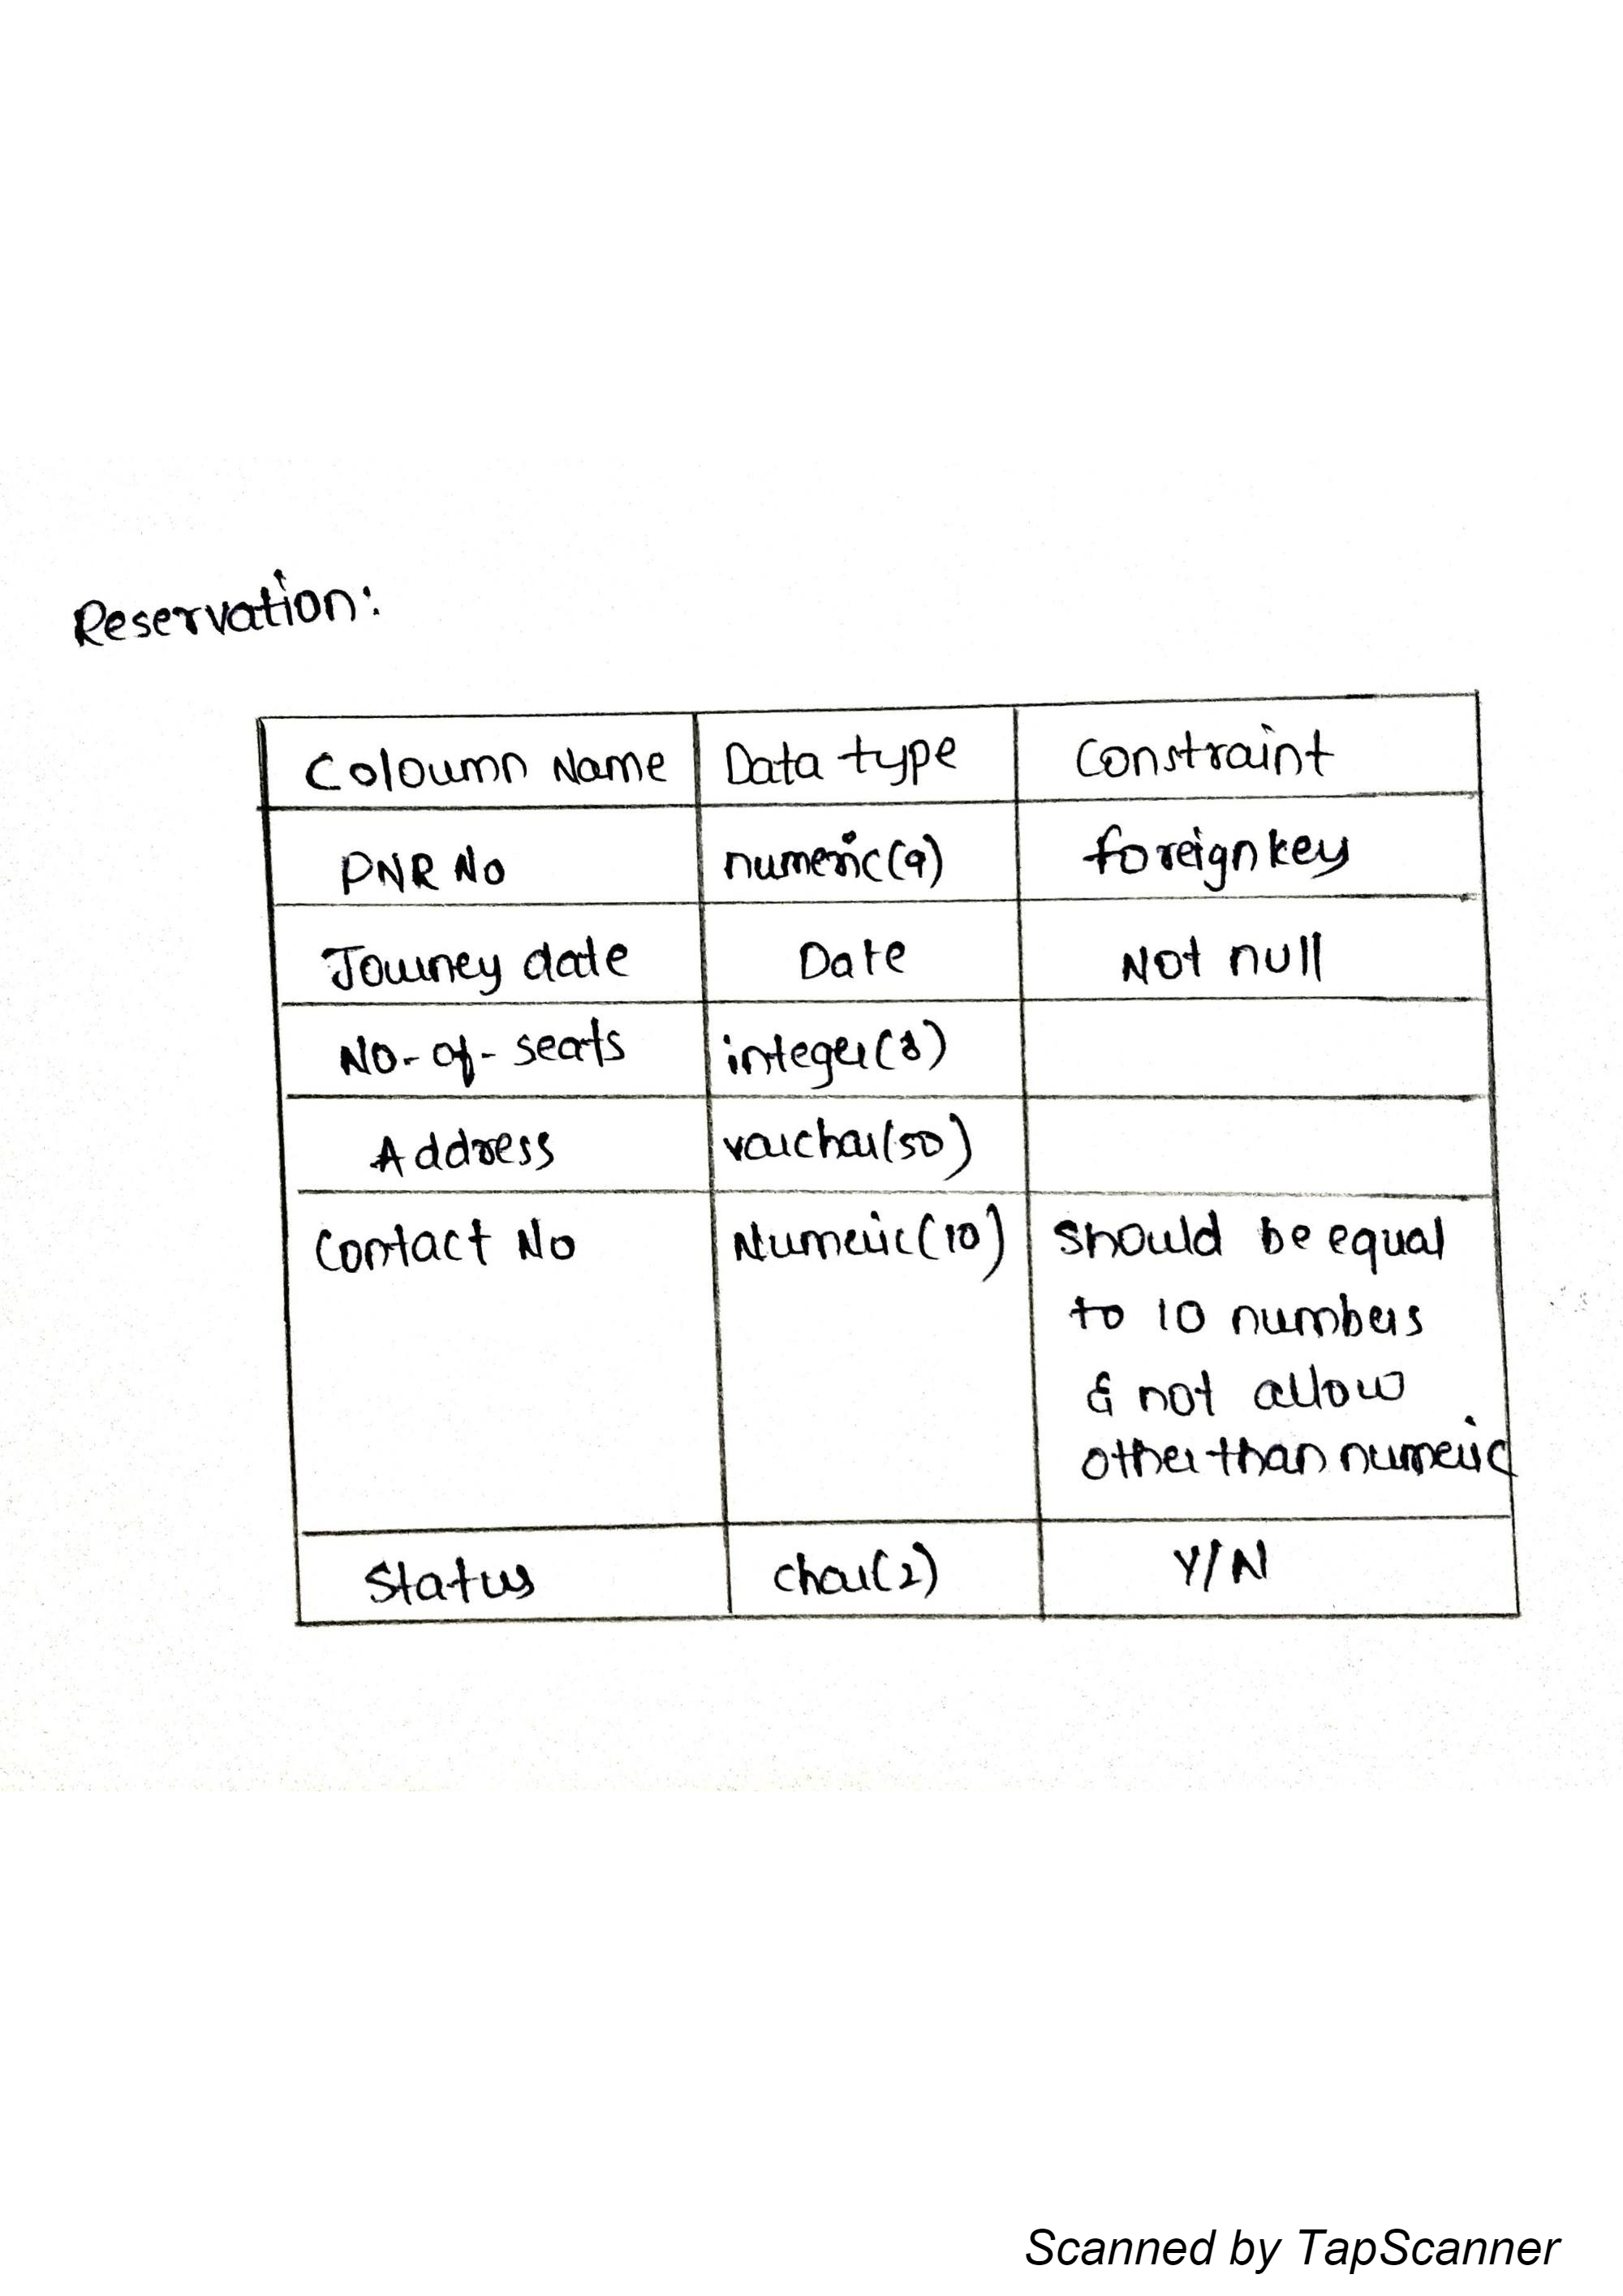 Reservation:
Coloumn Name Data type Constraint
PNR No numeric(9) foreign key
Journey date Date Not null
No-of-seats integer(8)
Address varchar(50)
Contact No Numeric(10) should be equal
to 10 numbers
& not allow
other than numeric
Status char(2) Y/N
Scanned by TapScanner